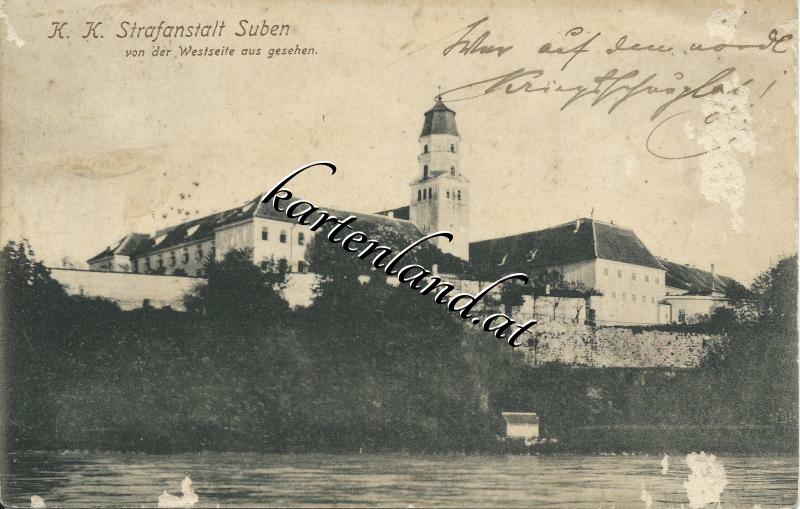 K. K. Strafanstalt Suben
von der Westseite aus gesehen.
War auf dem nord
Kriegsschauplatz!
kartenland.at